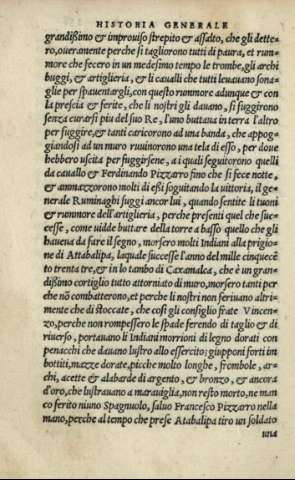 HISTORIA GENERALE
grandissimo & improuiso strepito & assalto, che gli dette-
ro, oueramente perche si tagliorono tutti di paura, et rum-
more che fecero in un medesimo tempo le trombe, gli archi
buggi, & artiglieria, & li caualli che tutti leuauano sona-
glie per spauentargli, con questo rummore adunque & con
la prescia & ferite, che li nostri gli dauano, si fuggirono
senza curarsi piu del suo Re, l'uno buttana in terra l'altro
per fuggire, & tanti caricorono ad una banda, che appog-
giandosi ad un muro ruuinorono una tela di esso, per doue
hebbero uscita per fuggirsene, a i quali seguitorono quelli
da cauallo & Ferdinando Pizzarro fino che si fece notte,
& ammazzorono molti di essi seguitando la uittoria, il ge-
nerale Ruminaghi fuggi ancor lui, quando sentite li tuoni
& rummore dell'artiglieria, perche presenti quel che suc-
cesse, come uidde buttare della torre a basso quello che gli
haueua da fare il segno, morsero molti Indiani alla prigio-
ne di Attabalipa, laquale successe l'anno del mille cinquecē
to trenta tre, & in lo tambo di Caxamalca, che è un gran-
dissimo cortiglio tutto attorniato di muro, morsero tanti per
che nō combatterono, et perche li nostri non feriuano altri-
mente che di stoccate, che cosi gli consiglio frate Vincen-
zo, perche non rompessero le spade ferendo di taglio & di
riuerso, portauano li Indiani morrioni di legno dorati con
penacchi che dauano lustro allo essercito; giupponi forti im
bottiti, mazze dorate, picche molto longhe, frombole, ar-
chi, acette & alabarde di argento, & bronzo, & ancora
d'oro, che lustrauano a marauiglia, non resto morto, ne man
co ferito niuno Spagnuolo, saluo Francesco Pizzarro nella
mano, perche al tempo che prese Atabalipa tiro un soldato
una